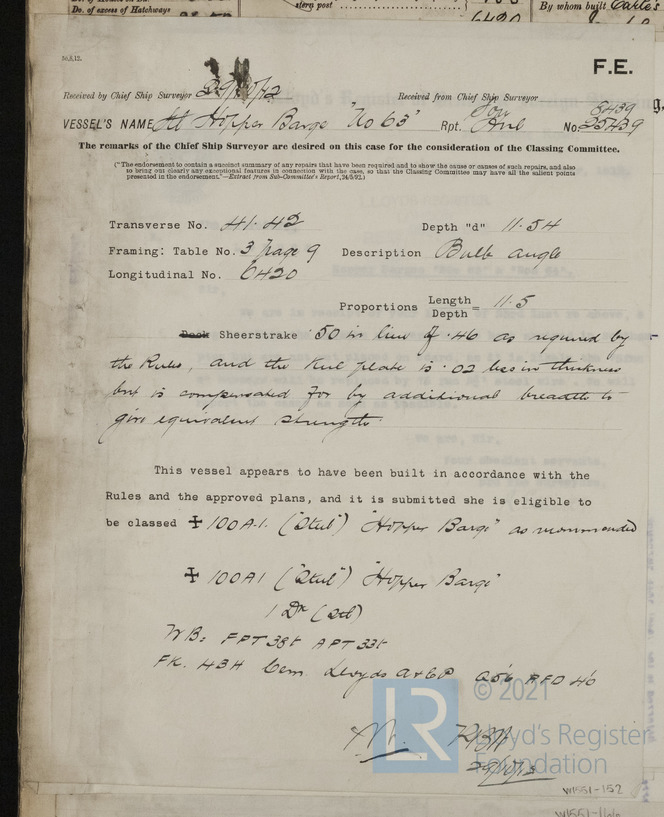 Do. of excess of Hatchways
stern post
6420
By whom built Earle's
50,5,12.
F.E.
Received by Chief Ship Surveyor 29/10/12
Received from Chief Ship Surveyor
8439
VESSEL'S NAME Hopper Barge "No 63" Rpt. Hul No. 25439
The remarks of the Chief Ship Surveyor are desired on this case for the consideration of the Classing Committee.
("The endorsement to contain a succinct summary of any repairs that have been required and to show the cause or causes of such repairs, and also
to bring out clearly any exceptional features in connection with the case, so that the Classing Committee may have all the salient points
presented in the endorsement."—Extract from Sub-Committee's Report, 24/5/92.)
Transverse No. 41.42 Depth "d" 11.54
Framing: Table No. 3 page 9 Description Bulb angle
Longitudinal No. 6420
Proportions Length/Depth = 11.5
Deck Sheerstrake .50 in lieu of .46 as required by
the Rules, and the Keel plate is .02 less in thickness
but is compensated for by additional breadth to
give equivalent strength.
This vessel appears to have been built in accordance with the
Rules and the approved plans, and it is submitted she is eligible to
be classed ✠ 100A.1. ("Steel") "Hopper Barge" as recommended
✠ 100A1 ("Steel") "Hopper Barge"
1 Dk (Stl)
WB: FPT 38t APT 33t
FK. 4BH Cem. Lloyds A&CP 56 RFD 46
© 2021
LR
Lloyd's Register
Foundation
29/10/12
W1551-152